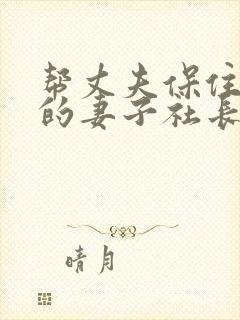 帮丈夫保住
的妻子社長
晴月